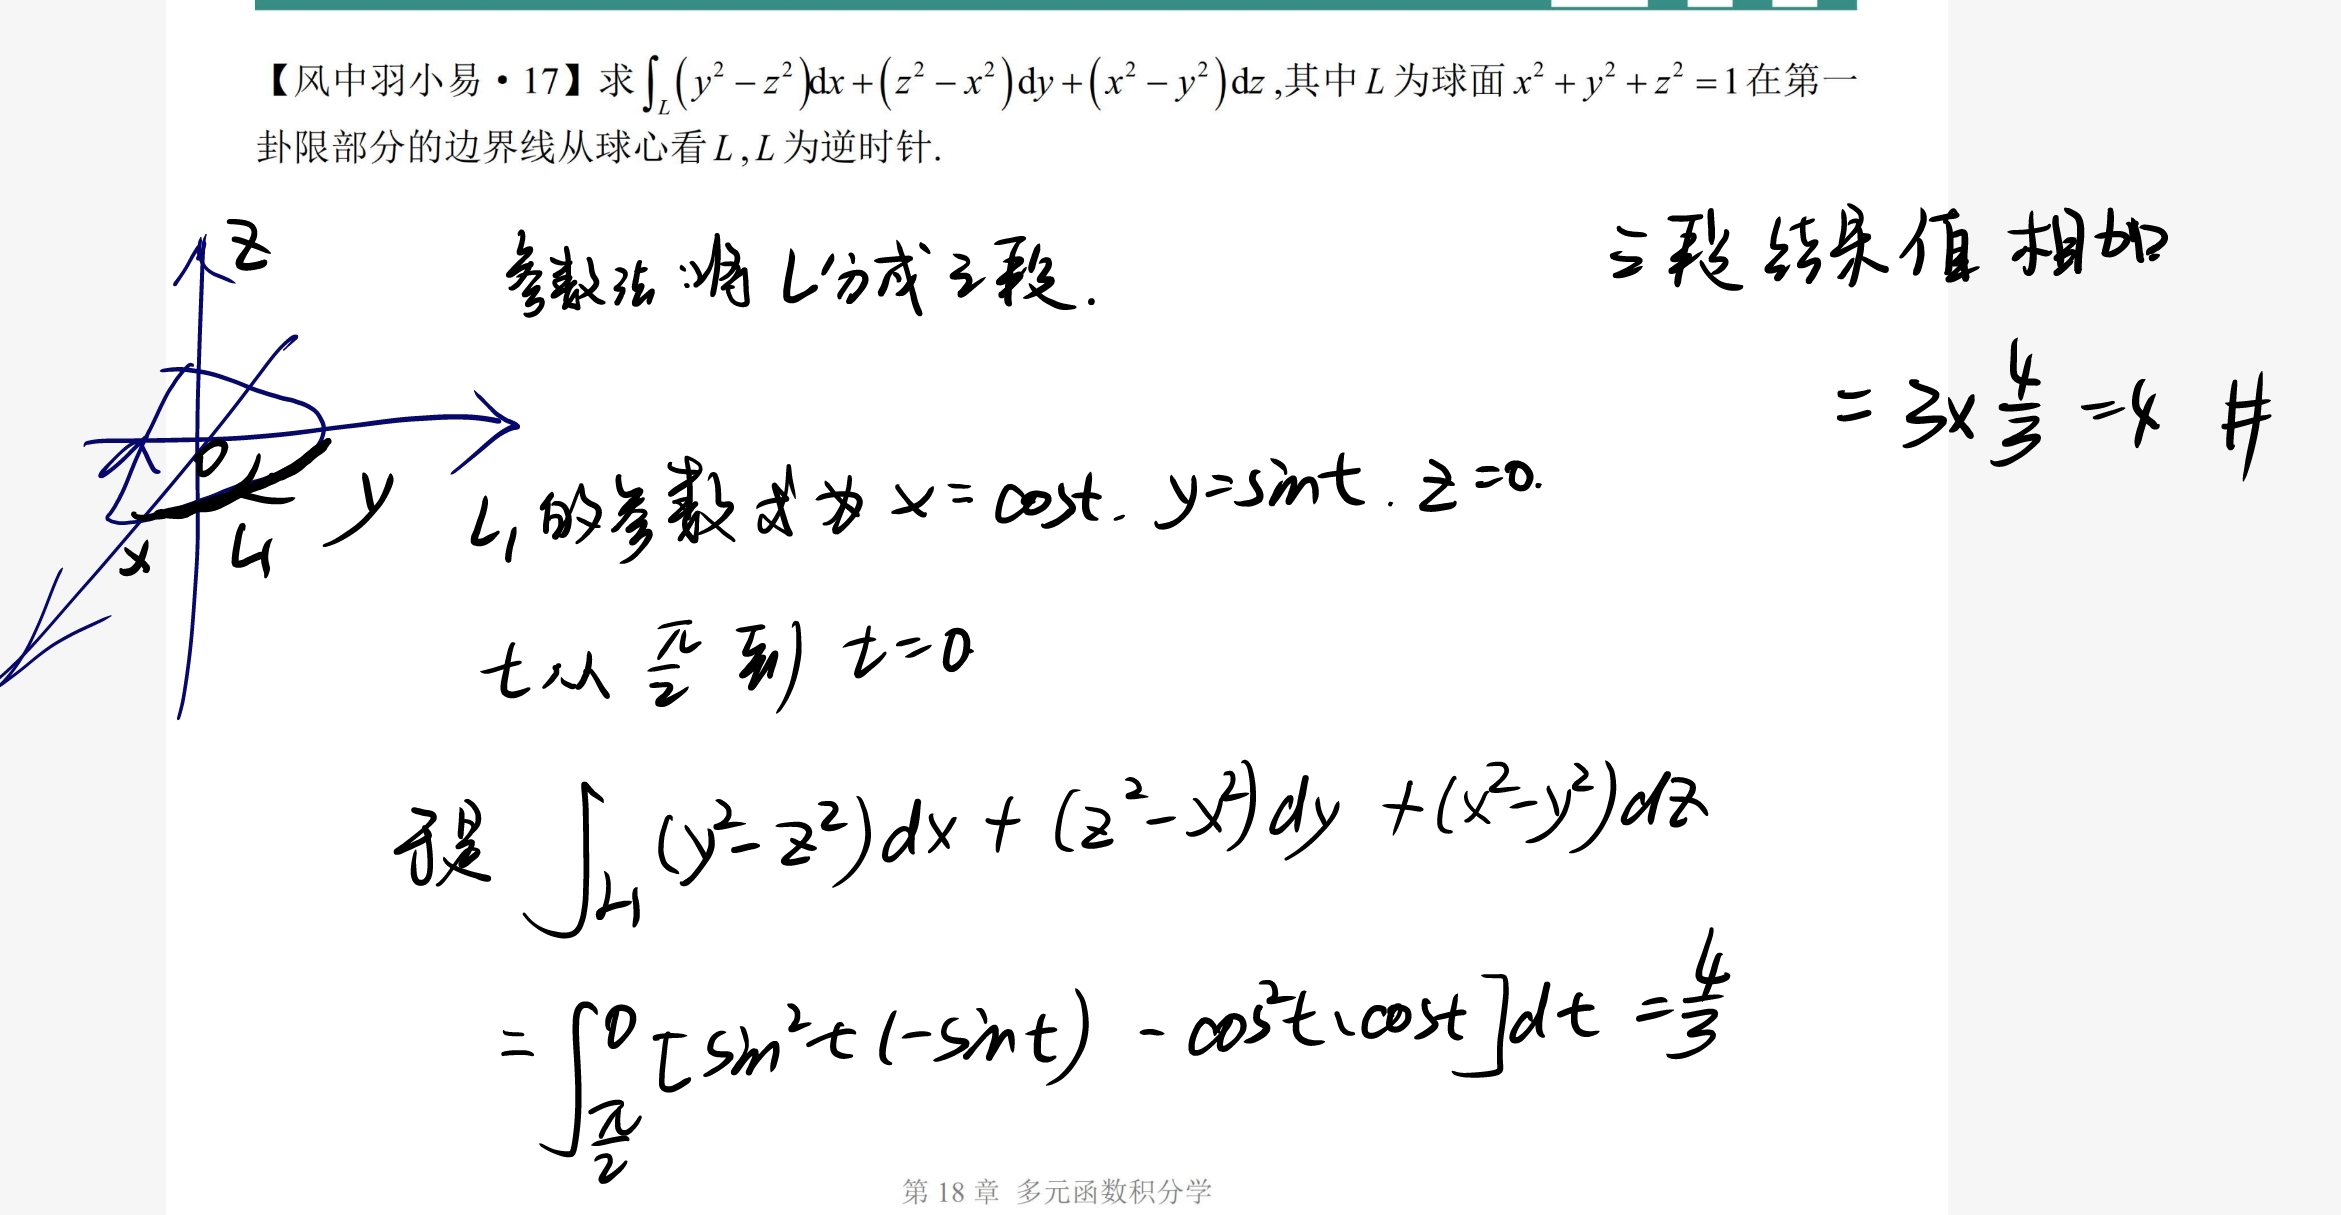 【风中羽小易·17】求∫_L(y²−z²)dx+(z²−x²)dy+(x²−y²)dz,其中L为球面x²+y²+z²=1在第一
卦限部分的边界线从球心看L,L为逆时针.
z
0
x
L₁
y
参数法:将L分成三段.
L₁的参数式为 x=cost. y=sint. z=0.
t从 π/2 到 t=0
于是 ∫_L₁(y²-z²)dx+(z²-x²)dy+(x²-y²)dz
=∫_{π/2}^{0}[sin²t(-sint)-cos²t·cost]dt=4/3
三段结果值相加
=3×4/3=4 #
第 18 章 多元函数积分学